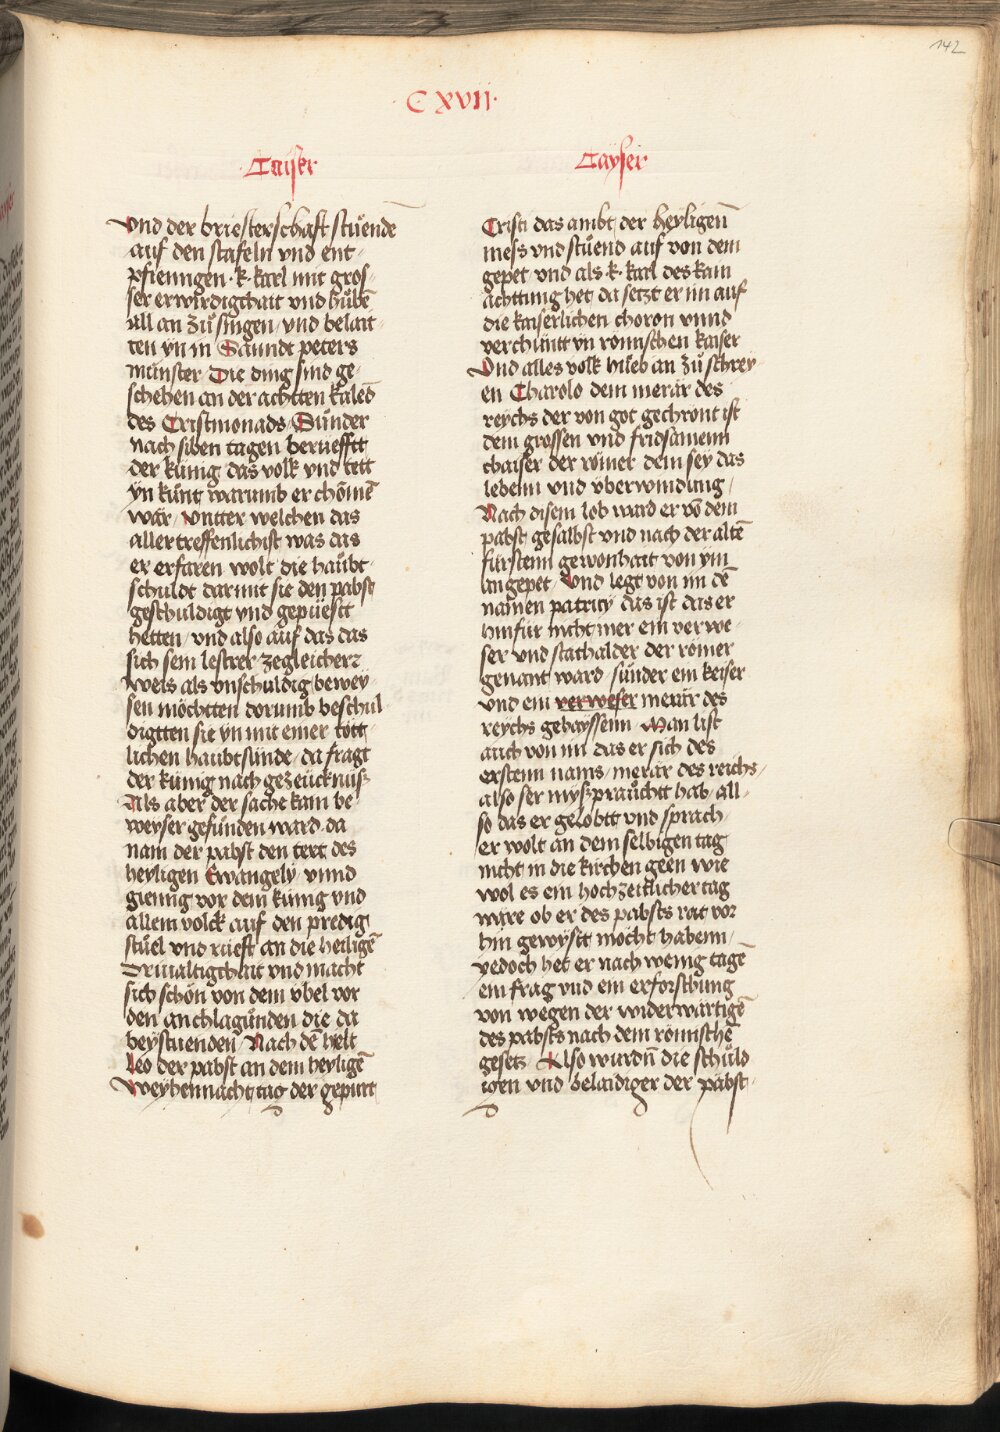 142
C XVII
Caiser
Cayser
Vnd der briesterschaft stuͤende
auf den stafeln vnd ent-
pfienngen · k · karl mit gros-
ser erwirdigchait vnd huͤbē
all an zuͦ singen / vnd belait-
ten yn in Sanndt peters
munster Die ding sind ge-
schehen an der achtten kaleḋ
des Cristmonads / Sunder
nach siben tagen beruͤefftt
der kunig das volk vnd tett
yn kunt warumb er chomē
war / vntter welchen das
aller treffenlichist was das
er erfaren wolt die haubt-
schuldt darmit sie den pabst
geschuldigt vnd gepuͤestt
hetten / vnd also auf das das
sich sein lestrer zegleicherr
weis als vnschuldig bewey-
sen möchtten dorumb beschul
digtten sie yn mit einer tött-
lichen haubtsünde / da fragt
der kunig nach gezeucknuß
Als aber der sache kain be-
weyser gefunden ward da
nam der pabst den text des
heyligen Ewangely vnnd
gienng vor dem kunig vnd
allem volck auf den predig
stuͤel vnd rueft an die heiligē
Driualtigchait vnd macht
sich schön von dem vbel vor
den anchlagunden die da
beystuenden / Nach dē hielt
Leo der pabst an dem heyligē
Weyhennacht tag der gepurt
Cristi das ambt der heyligen̄
mess vnd stuͤend auf von dem
gepet vnd als k · karl des kain
achttung het da setzt er im auf
die kaiserlichen choron vnnd
verchuntt yn romischen kaiser
Vnd alles volk hueb an zuͦ schrey-
en Charolo dem merar des
reychs der von got gechront ist
dem grossen vnd fridsamenn
chaiser der römer dem sey das
lebenn vnd vberwindung /
Nach disem lob ward er vō dem
pabst gesalbst vnd nach der altē
fürstenn gewonhait von ym
angepet / Vnd legt von im dē
namen patricy das ist das er
hinfür nicht mer ein verwe-
ser vnd stathalder der römer
genant ward sunder ein keiser
vnd ein verweser merar des
reychs gehayssenn / Man list
auch von im das er sich des
erstenn nams / merar des reichs /
also ser myszprauchtt hab / all-
so das er gelobtt vnd sprach
er wolt an dem selbigen tag
nicht in die kirchen geen wie
wol es ein hochzeitlicher tag
ware ob er des pabsts rat vor
hin gewystt mocht habenn /
yedoch het er nach wenig tagē
ein frag vnd ein erforschung
von wegen der widerwartigē
des pabsts nach dem romischē
gesetz / Also wurdn̄ die schuld
igen vnd belaidiger der pabst